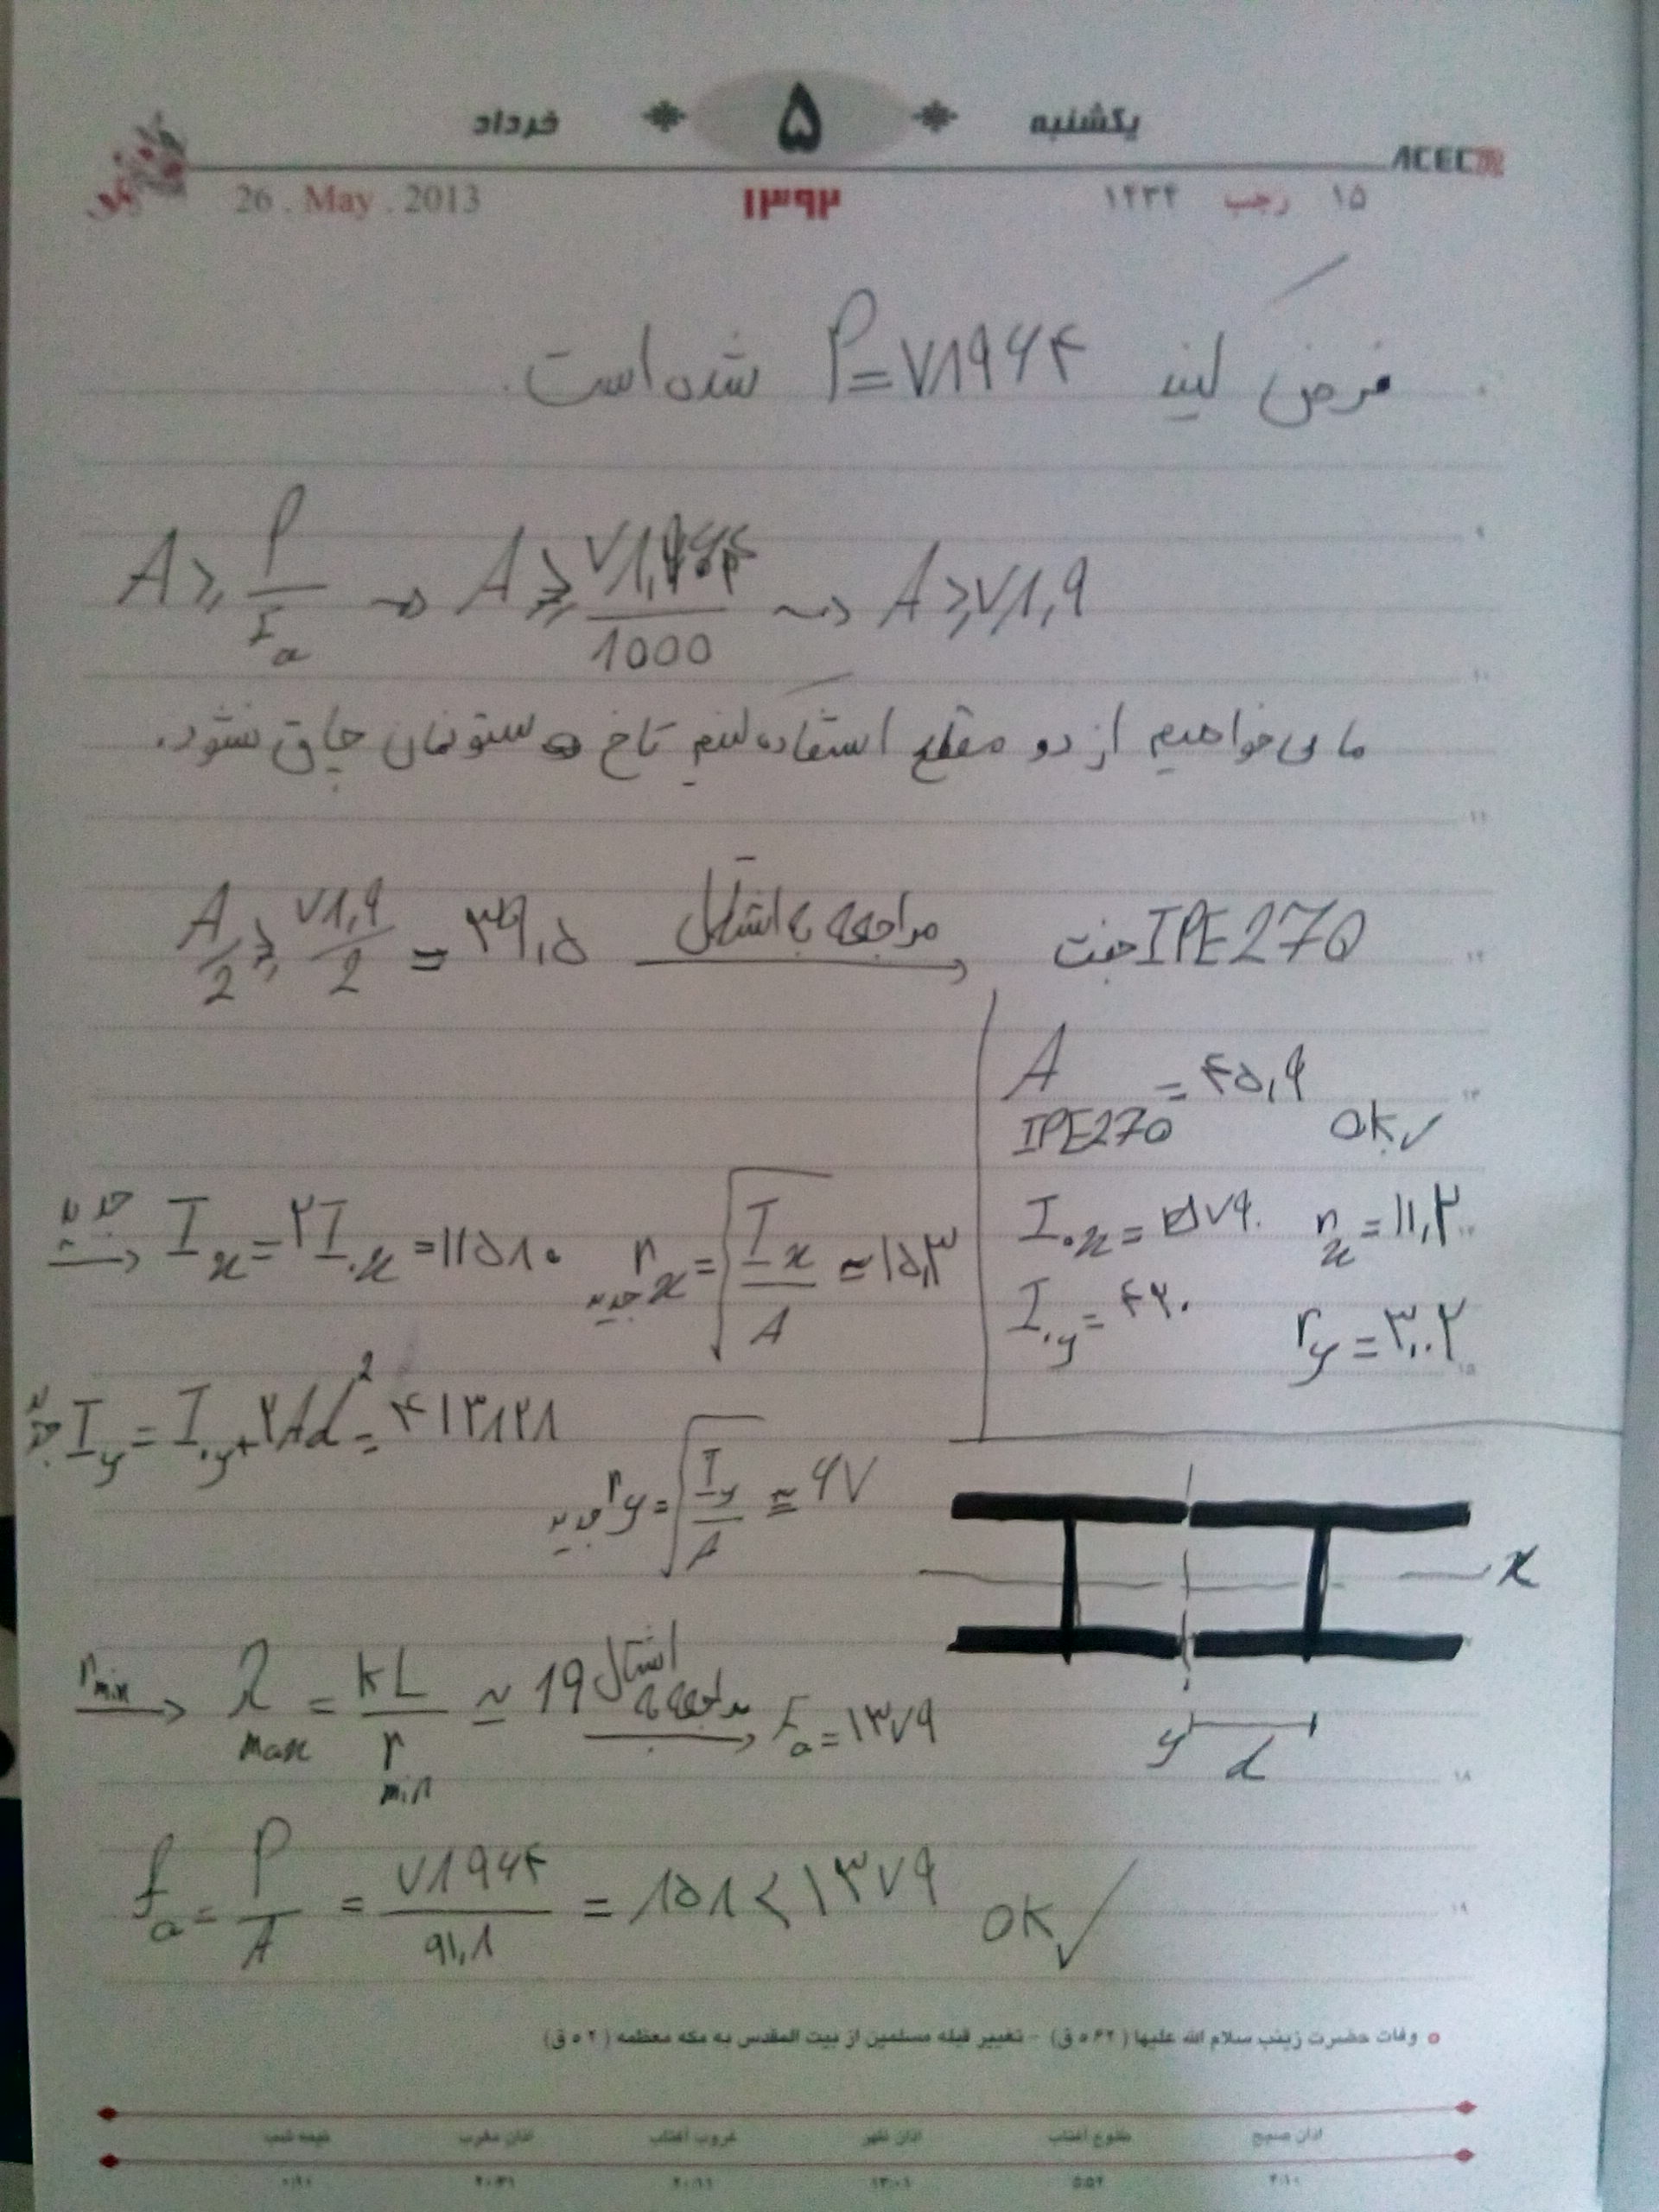 یکشنبه ۵ خرداد
ACECR
26 . May . 2013 ۱۳۹۲ ۱۵ رجب ۱۴۳۴
فرض کنید P=V1964 شده است.
A ≥ P/Fa → A ≥ /1000 → A ≥ V1,9
ما می‌خواهیم از دو مقطع استفاده کنیم تاخ ستونمان چاق نشود.
A/2 ≥ V1,9/2 = ۳۹,۵ مراجعه به اشتال → جفت IPE270
A IPE270 = ۴۵,۹ OK✓
I.x = ۵۷۹۰ rx = ۱۱,۲
I.y = ۴۲۰ ry = ۳,۰۲
جدید → Ix = ۲I.x = ۱۱۵۸۰ جدید rx = √Ix/A ≃ ۱۵,۳
جدید Iy = I.y + ۲Ad² = ۴۱۳۸۲۸
جدید ry = √Iy/A ≃ ۹۷
x
y d
rmin → λmax = kL/rmin ≃ 19 مراجعه به اشتال → Fa = ۱۳۷۹
fa = P/A = V1964/۹۱,۸ = < ۱۳۷۹ OK✓
وفات حضرت زینب سلام الله علیها (۶۲ ه ق) - تغییر قبله مسلمین از بیت المقدس به مکه معظمه (۲ ه ق)
اذان صبح طلوع آفتاب اذان ظهر غروب آفتاب اذان مغرب نیمه شب